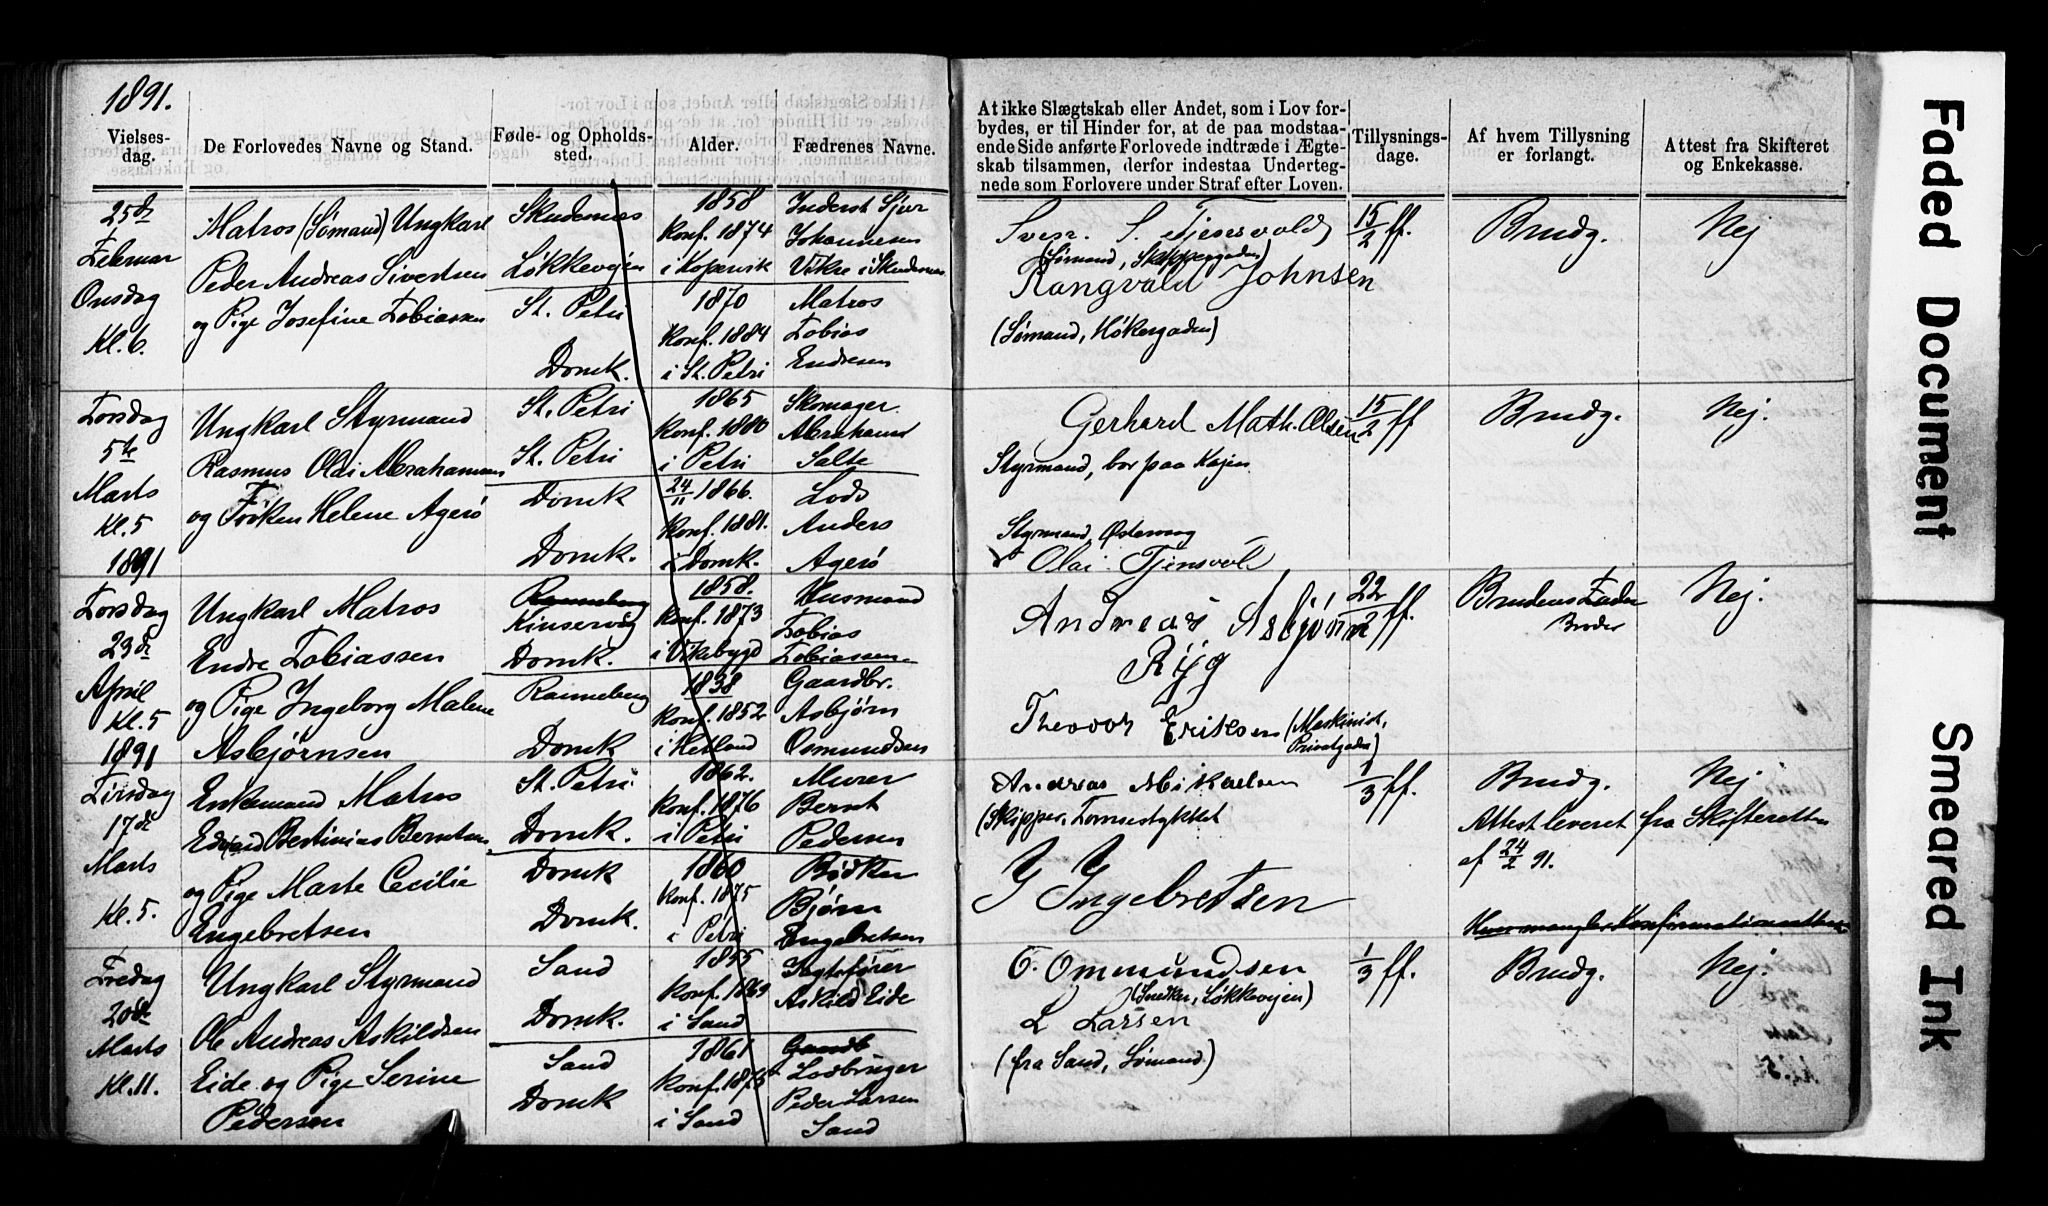 1891.
Vielses-
dag.
De Forlovedes Navne og Stand.
Føde- og Opholds-
sted.
Alder.
Fædrenes Navne.
At ikke Slægtskab eller Andet, som i Lov for-
bydes, er til Hinder for, at de paa modstaa-
ende Side anførte Forlovede indtræde i Ægte-
skab tilsammen, derfor indestaa Underteg-
nede som Forlovere under Straf efter Loven.
Tillysnings-
dage.
Af hvem Tillysning
er forlangt.
Attest fra Skifteret
og Enkekasse.
25de
Februar
Onsdag
Kl. 6.
Matros (Sømand) Ungkarl
Peder Andreas Sivertsen
og Pige Josefine Tobiassen
Skudesnes
Løkkeveien
St. Petri
Domk.
1858
Konf. 1874
i Kopervik
1870
Konf. 1884
i St. Petri
Inderst Sjur
Johannesen
Vikre i Skudesnes
Matros
Tobias
Endresen
S. Tjensvold
(Sømand, Skippergaden)
Rangvald Johnsen
(Sømand, Høkergaden)
15/2 ff.
Brudg.
Nej
Torsdag
5te
Marts
Kl. 5
1891
Ungkarl Styrmand
Rasmus Olai Abrahamsen
og Frøken Helene Agerø
St. Petri
St. Petri
Domk
Domk.
1865
Konf. 1880
i Petri
24/11 1866.
Konf. 1881.
i Domk.
Skomager
Abraham
Salte
Lods
Anders
Agerø
Gerhard Math. Olsen
Styrmand, bor paa Kajen
Styrmand, Østervaag
Olai Tjensvol
15/2 ff
Brudg.
Nej.
Torsdag
23de
April
Kl. 5
1891
Ungkarl Matros
Endre Tobiassen
og Pige Ingeborg Malene
Asbjørnsen
Ranneberg
Kinservig
Domk.
Ranneberg
Domk
1858.
Konf. 1873
i Vikebygd
1838
Konf. 1852
i Hetland
Husmand
Tobias
Tobiassen
Gaardbr.
Asbjørn
Osmundsen
Andreas Asbjørn
Ryg
Theodor Eriksen (Maskinist,
Privatgaden)
22/2 ff.
Brudens Fader
Broder
Nej.
Tirsdag
17de
Marts
Kl. 5.
Enkemand Matros
Edvard Bertinius Berntsen
og Pige Marte Cecilie
Engebretsen
St. Petri
Domk.
Domk
Domk.
1862.
Konf. 1876
i Petri
1860
Konf. 1875
i Petri
Murer
Bernt
Pedersen
Bødker
Bjørn
Engebretsen
Andreas Mikaelsen
(Skipper, Tomsestykket
Y Yngebretsen
1/3 ff.
Brudg.
Nej
Attest leveret fra Skifteretten
af 24/2 91.
Hun mangler Konfirmationsattest
Fredag
20de
Marts
Kl. 11.
Ungkarl Styrmand
Ole Andreas Askildsen
Eide og Pige Serine
Pedersen
Sand
Domk.
Sand
Domk
1855
Konf. 1869
i Sand
1861
Konf. 1875
i Sand
Jagtefører
Askild Eide
Gaardb
Lodbruger
Peder Larsen
Sand
O. Ommundsen
(Snedker, Løkkevejen)
L Larsen
(fra Sand, Sømand)
1/3 ff.
Brudg.
Nej.
Faded Document
Smeared Ink